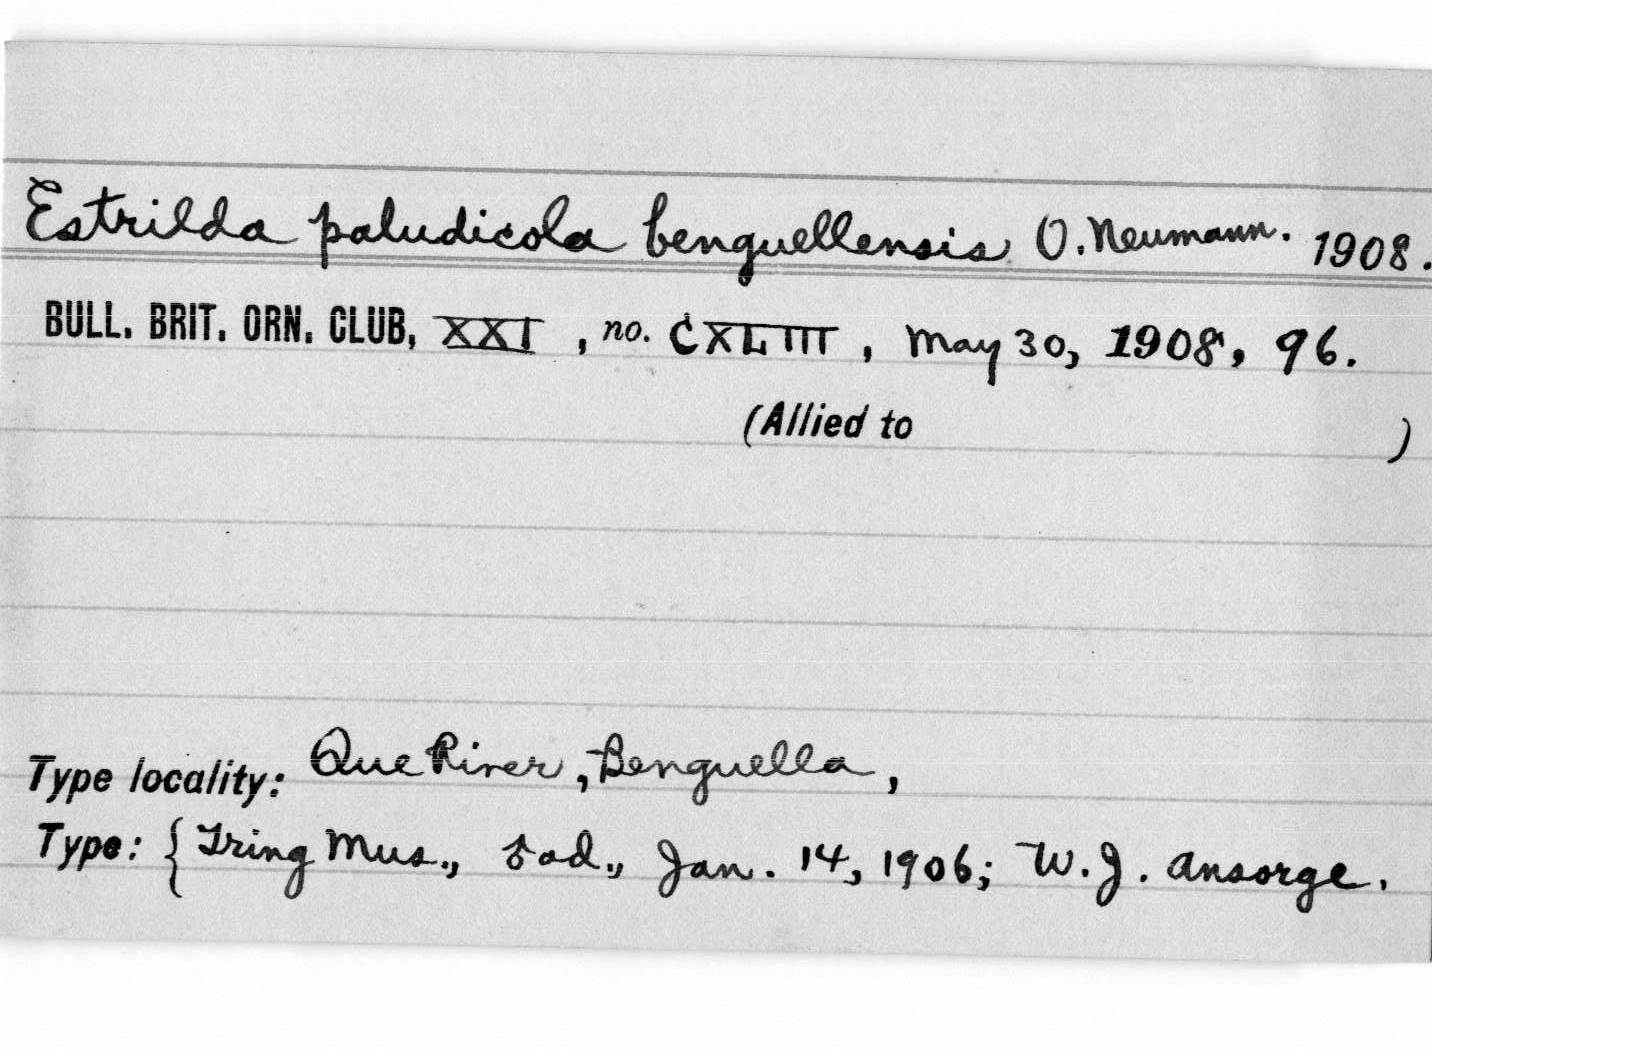 Estrilda paludicola benguellensis O. Neumann. 1908.
BULL. BRIT. ORN. CLUB, XXI, no. CXLIII, May 30, 1908, 96.
(Allied to )
Type locality: Que River, Benguella,
Type: { Tring Mus., ♂ ad., Jan. 14, 1906; W. J. Ansorge.